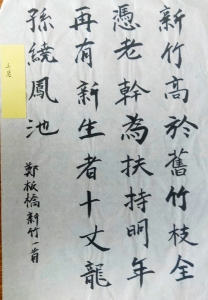 新竹高於舊竹枝全
憑老幹為扶持明年
再有新生者十丈龍
孫繞鳳池
鄭板橋新竹一首